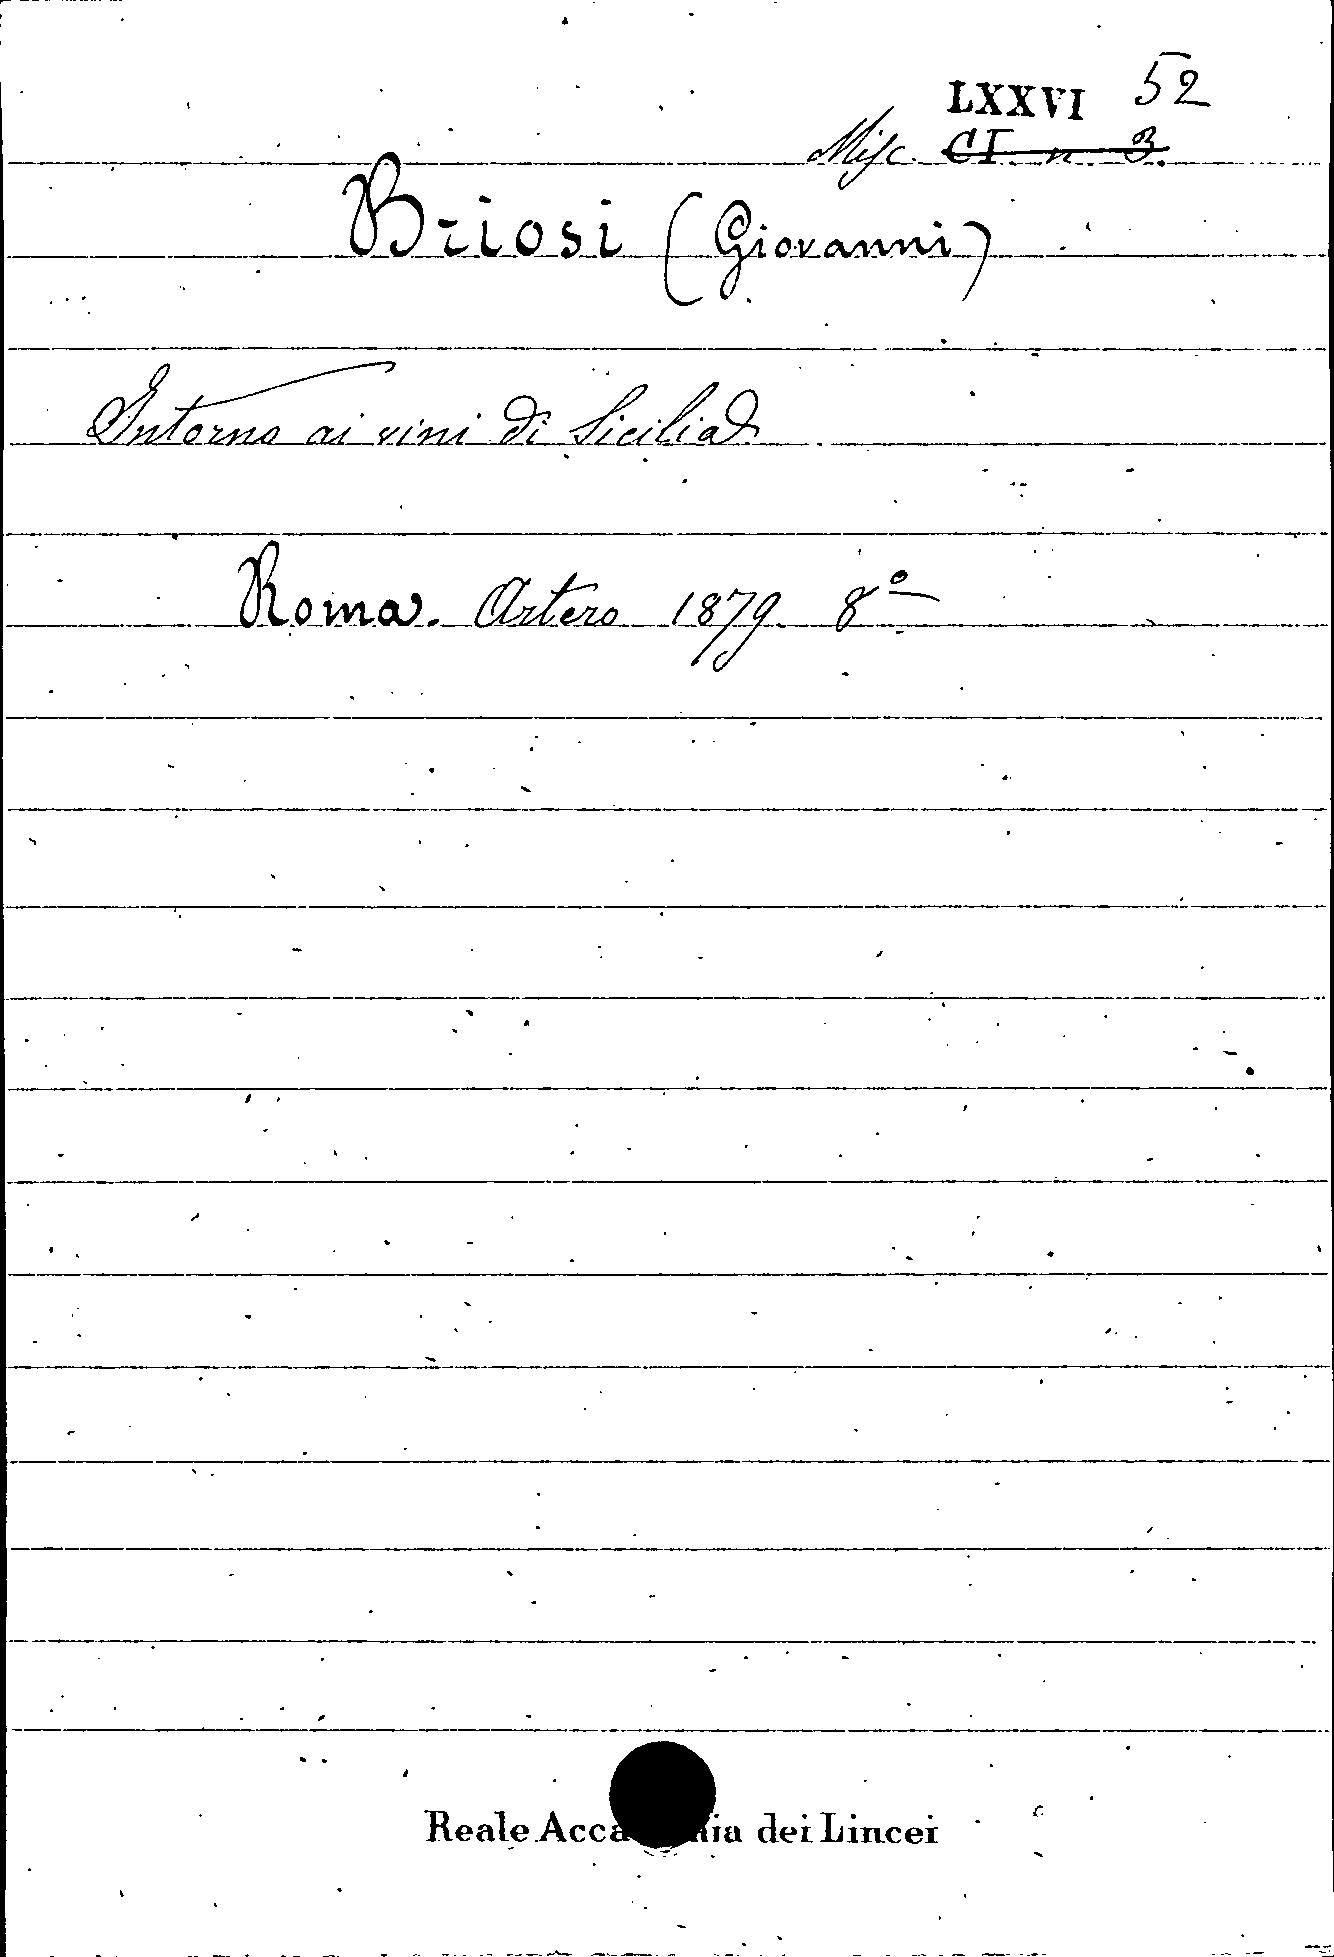 LXXVI 52
Misc. CI. n. 3.
Briosi (Giovanni)
Intorno ai vini di Sicilia
Roma. Artero 1879. 8º
Reale Accademia dei Lincei